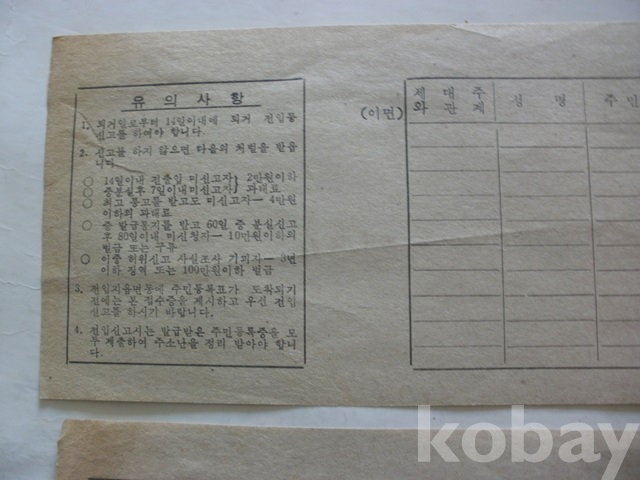 유의사항
1. 퇴거일로부터 14일이내에 퇴거 전입등
신고를 하여야 합니다.
2. 신고를 하지 않으면 다음의 처벌을 받읍
니다.
○ 14일이내 전출입 미신고자 2만원이하
○ 증분실후 7일이내미신고자 과태료
○ 최고 통고를 받고도 미신고자ー4만원
이하의 과태료
○ 증 발급통지를 받고 60일 증 분실신고
후 80일이내 미신청자ー10만원이하의
벌금 또는 구류
○ 이중 허위신고 사실조사 기피자ー3년
이하 징역 또는 100만원이하 벌금
3. 전입지읍면동에 주민등록표가 도착되기
전에는 본 접수증을 제시하고 우선 전입
신고를 하시기 바랍니다.
4. 전입신고시는 발급받은 주민등록증을 모
두 제출하여 주소난을 정리 받아야 합니
다.
(이면)
세대주
와 관계
성명
주민
kobay